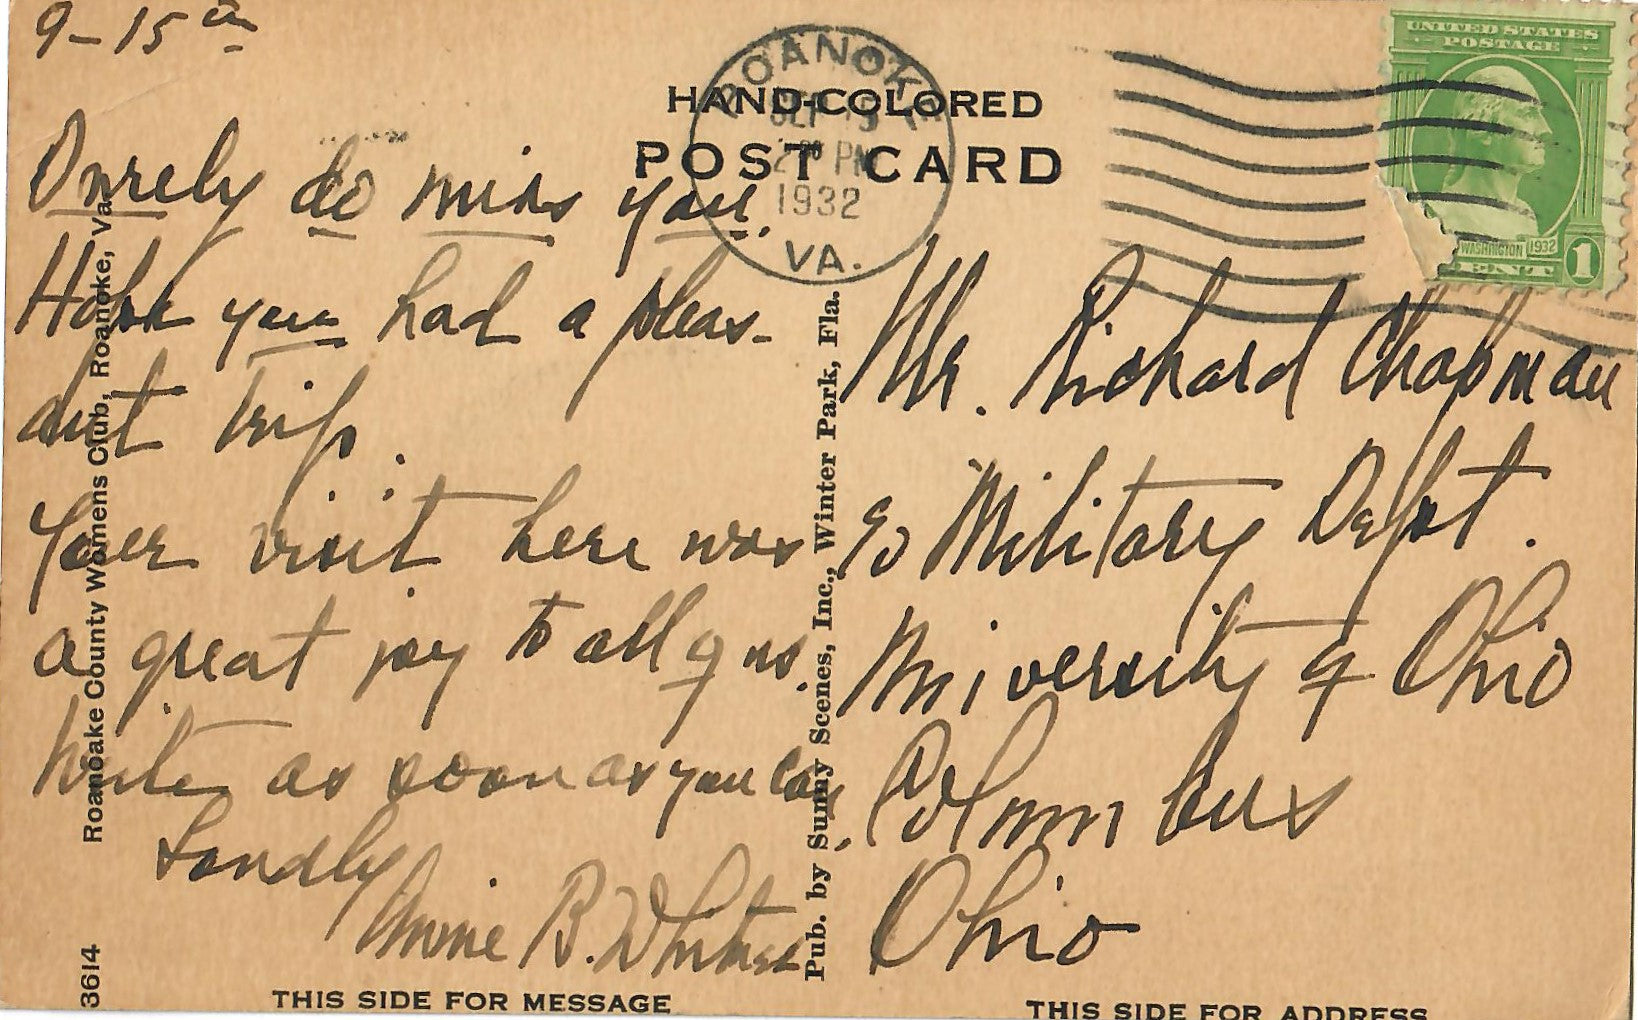 9-15
HAND-COLORED
POST CARD
ROANOKE
SEP 15
2 PM
1932
VA.
UNITED STATES
POSTAGE
WASHINGTON 1932
CENT 1
Surely do miss you.
Hope you had a pleas-
ant trip.
Your visit here was
a great joy to all of us.
Write as soon as you can,
Fondly
B.
Mr. Richard Chapman
% Military Dept.
University of Ohio
Columbus
Ohio
Roanoake County Womens Club, Roanoke, Va.
3614
Pub. by Sunny Scenes, Inc., Winter Park, Fla.
THIS SIDE FOR MESSAGE
THIS SIDE FOR ADDRESS